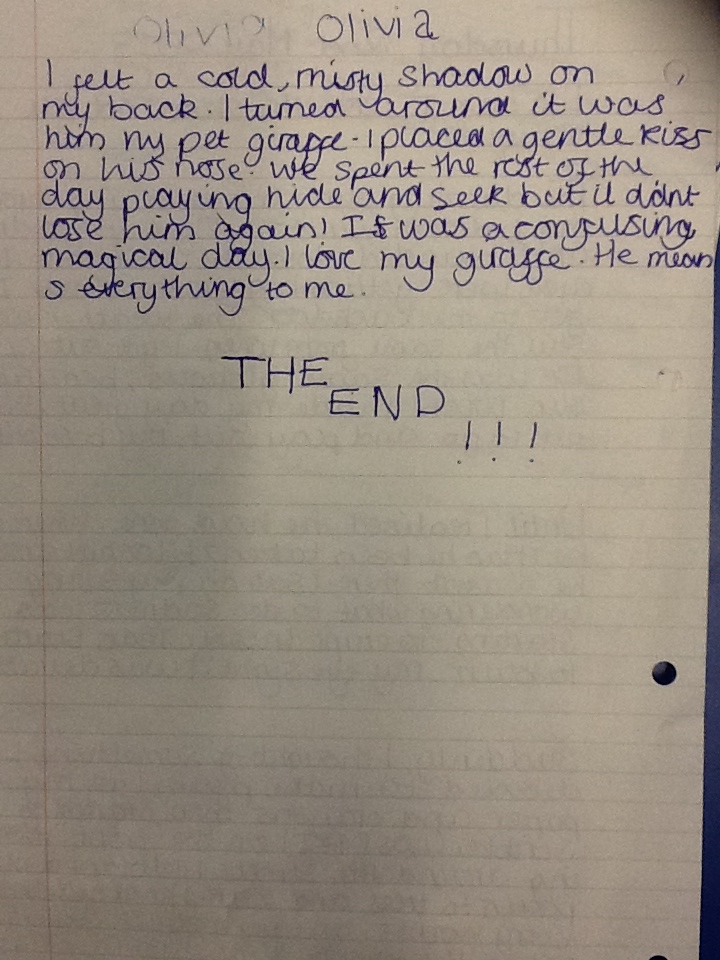 Olivia Olivia
I felt a cold, misty shadow on
my back. I turned around it was
him my pet giraffe. I placed a gentle kiss
on his nose. we spent the rest of the
day playing hide and seek but id didnt
lose him again! It was a confusing
magical day. I love my giraffe. He mean
s everything to me.
THE
END
!!!